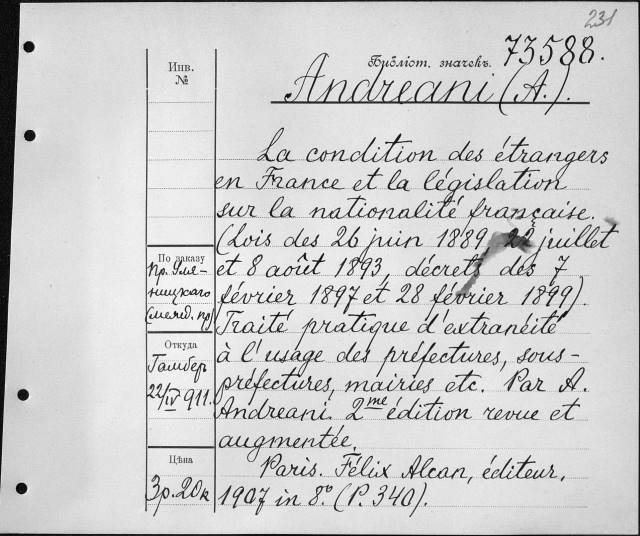 231
Библіот. значекъ. 73588.
Andreani (A.).
Инв.
№
La condition des étrangers
en France et la législation
sur la nationalité française.
(Lois des 26 juin 1889, 22 juillet
et 8 août 1893, décrets des 7
février 1897 et 28 février 1899).
Traité pratique d'extranéité
à l'usage des préfectures, sous-
préfectures, mairies etc. Par A.
Andreani. 2me édition revue et
augmentée.
Paris. Félix Alcan, éditeur.
1907 in 8º. (P. 340).
По заказу
пр. Уля-
ницкаго
Откуда
Гамбер
22/IV 911.
Цѣна
3р. 20к